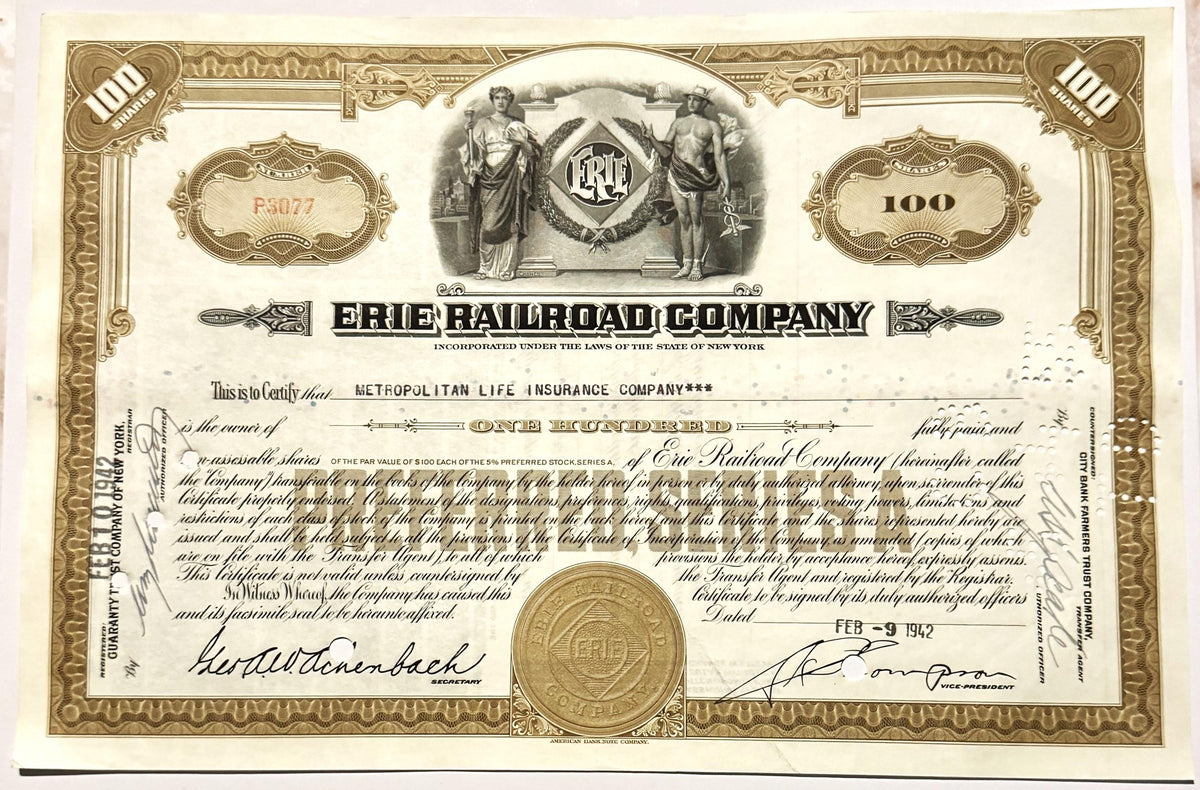 100 SHARES
100 SHARES
NUMBER
P3077
SHARES
100
ERIE
ERIE RAILROAD COMPANY
INCORPORATED UNDER THE LAWS OF THE STATE OF NEW YORK
This is to Certify that METROPOLITAN LIFE INSURANCE COMPANY***
is the owner of ONE HUNDRED fully paid and
non-assessable shares OF THE PAR VALUE OF $100 EACH OF THE 5% PREFERRED STOCK, SERIES A, of Erie Railroad Company (hereinafter called
the Company) transferable on the books of the Company by the holder hereof in person or by duly authorized attorney, upon surrender of this
Certificate properly endorsed. A statement of the designations, preferences, rights, qualifications, privileges, voting powers, limitations and
restrictions of each class of stock of the Company is printed on the back hereof and this Certificate and the shares represented hereby are
issued and shall be held subject to all the provisions of the Certificate of Incorporation of the Company, as amended (copies of which
are on file with the Transfer Agent), to all of which provisions the holder by acceptance hereof, expressly assents.
This Certificate is not valid unless countersigned by the Transfer Agent and registered by the Registrar.
In Witness Whereof, the Company has caused this Certificate to be signed by its duly authorized officers
and its facsimile seal to be hereunto affixed. Dated FEB -9 1942
PREFERRED, SERIES A
Geo A W Achenbach
SECRETARY
VICE-PRESIDENT
ERIE RAILROAD COMPANY
ERIE
AMERICAN BANK NOTE COMPANY.
REGISTERED:
GUARANTY TRUST COMPANY OF NEW YORK,
REGISTRAR
FEB 10 1942
By
AUTHORIZED OFFICER
COUNTERSIGNED:
CITY BANK FARMERS TRUST COMPANY,
TRANSFER AGENT
By
AUTHORIZED OFFICER